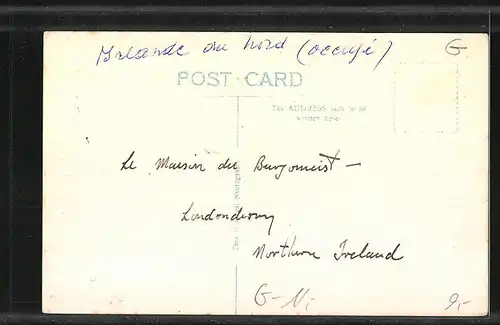 Irlande du Nord (occupé)
G
POST CARD
The ADDRESS only to be
written here.
Le Maison du Burgomeist-
Londonderry
Northern Ireland
This is a real photograph
G-N,-
9,-